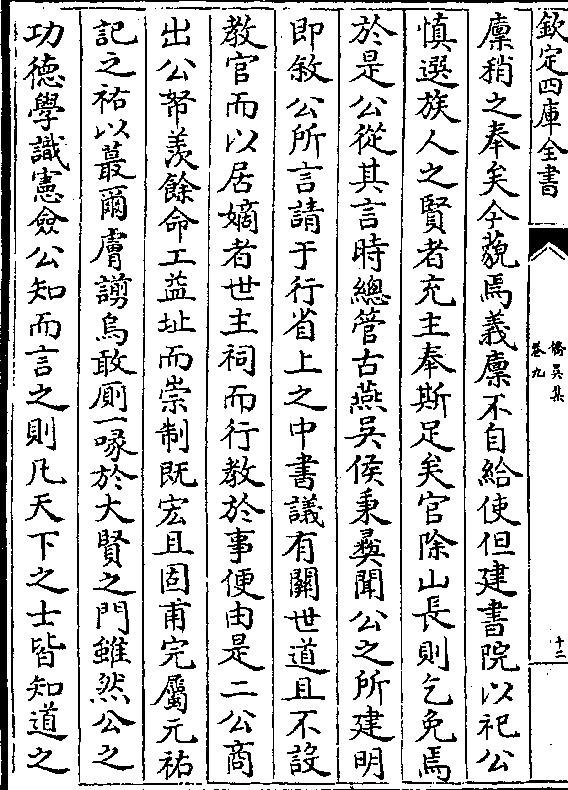 欽定四庫全書
僑吳集
卷九
十二
廪稍之奉矣今藐焉義廪不自給使但建書院以祀公
慎選族人之賢者充主奉斯足矣官除山長則乞免焉
於是公從其言時總管古燕吳侯秉彛聞公之所建明
即敘公所言請于行省上之中書議有關世道且不設
教官而以居嫡者世主祠而行教於事便由是二公商
出公帑羨餘命工益址而崇制既宏且固甫完屬元祐
記之祐以蕞爾膚謭烏敢厠一喙於大賢之門雖然公之
功德學識憲僉公知而言之則凡天下之士皆知道之